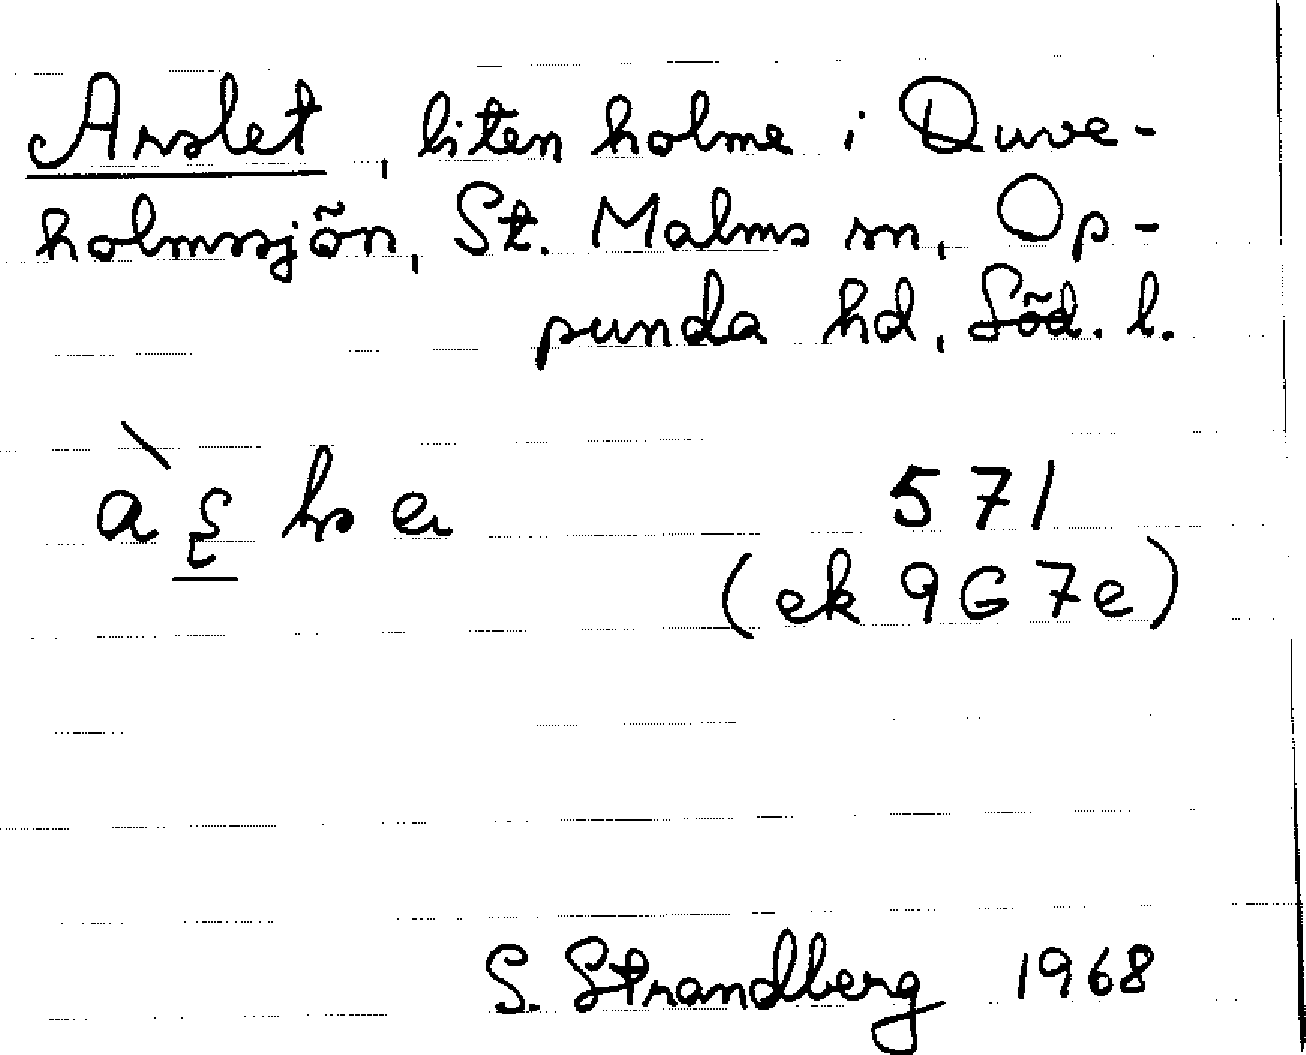 Arslet, liten holme i Duve-
holmssjön, St. Malms sn, Op-
punda hd, Söd. l.
571
(ek 9G 7e)
S. Strandberg 1968